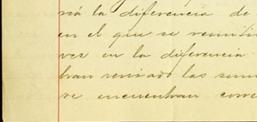 rá la diferencia de
en el que se reunie
ves en la diferencia
bran revisado las sum
se encuentran corre